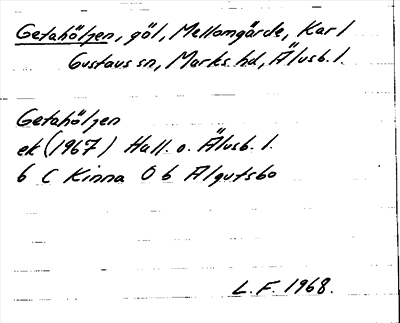 Getahöljen, göl, Mellomgärde, Karl
Gustavs sn, Marks hd, Älvsb. l.
Getahöljen
ek (1967) Hall. o. Älvsb. l.
6 C Kinna 0 b Algutsbo
L.F. 1968.